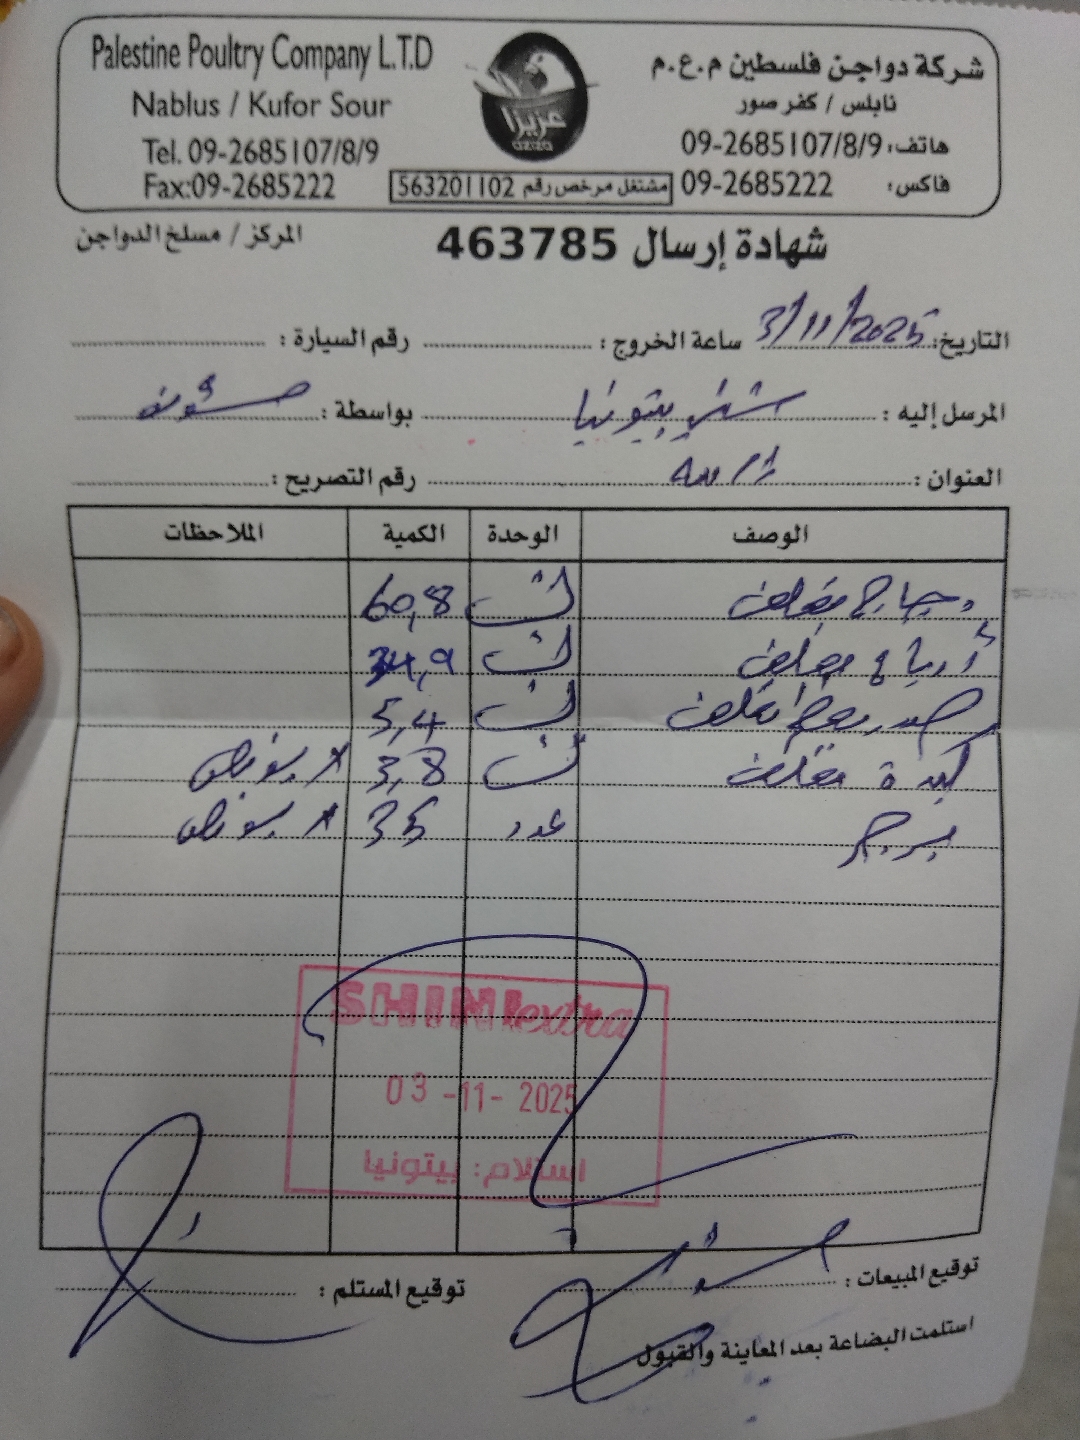 Palestine Poultry Company L.T.D
Nablus / Kufor Sour
Tel. 09-2685107/8/9
Fax:09-2685222
عزيزا
aziza
مشتغل مرخص رقم 563201102
شركة دواجن فلسطين م.ع.م
نابلس / كفر صور
هاتف: 09-2685107/8/9
فاكس: 09-2685222
شهادة إرسال 463785
المركز / مسلخ الدواجن
التاريخ: 3/11/2025 ساعة الخروج : رقم السيارة :
المرسل إليه : شني بيتونيا بواسطة :
العنوان : رقم التصريح :
الوصف الوحدة الكمية الملاحظات
دجاج مغلف ك 60,8
أرباع مغلف ك 34,9
صدر مغلف ك 5,4
كبدة مغلف ك 3,8 * بونص
برجر عدد 35 * بونص
SHINI extra
03 -11- 2025
استلام: بيتونيا
توقيع المبيعات : توقيع المستلم :
استلمت البضاعة بعد المعاينة والقبول